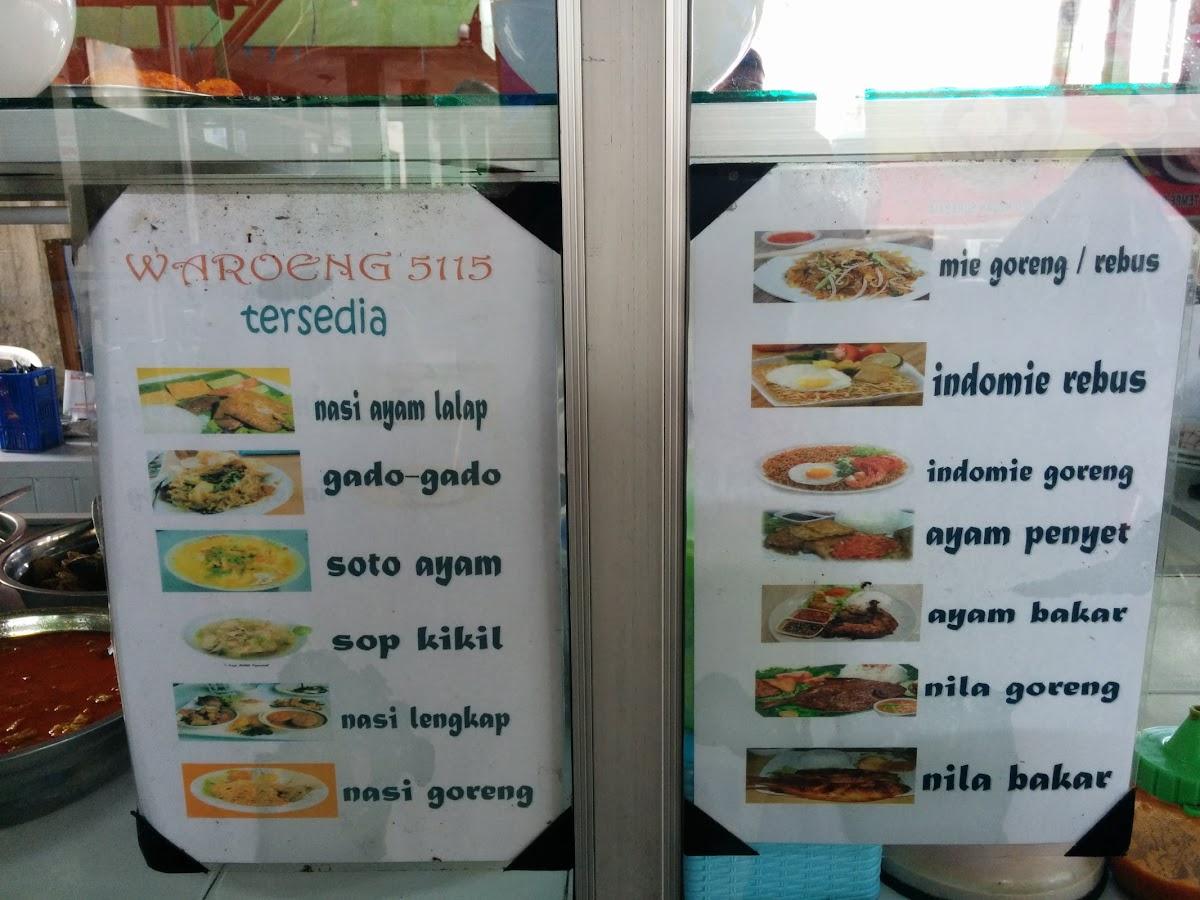 WAROENG 5115
tersedia
nasi ayam lalap
gado-gado
soto ayam
sop kikil
nasi lengkap
nasi goreng
mie goreng / rebus
indomie rebus
indomie goreng
ayam penyet
ayam bakar
nila goreng
nila bakar